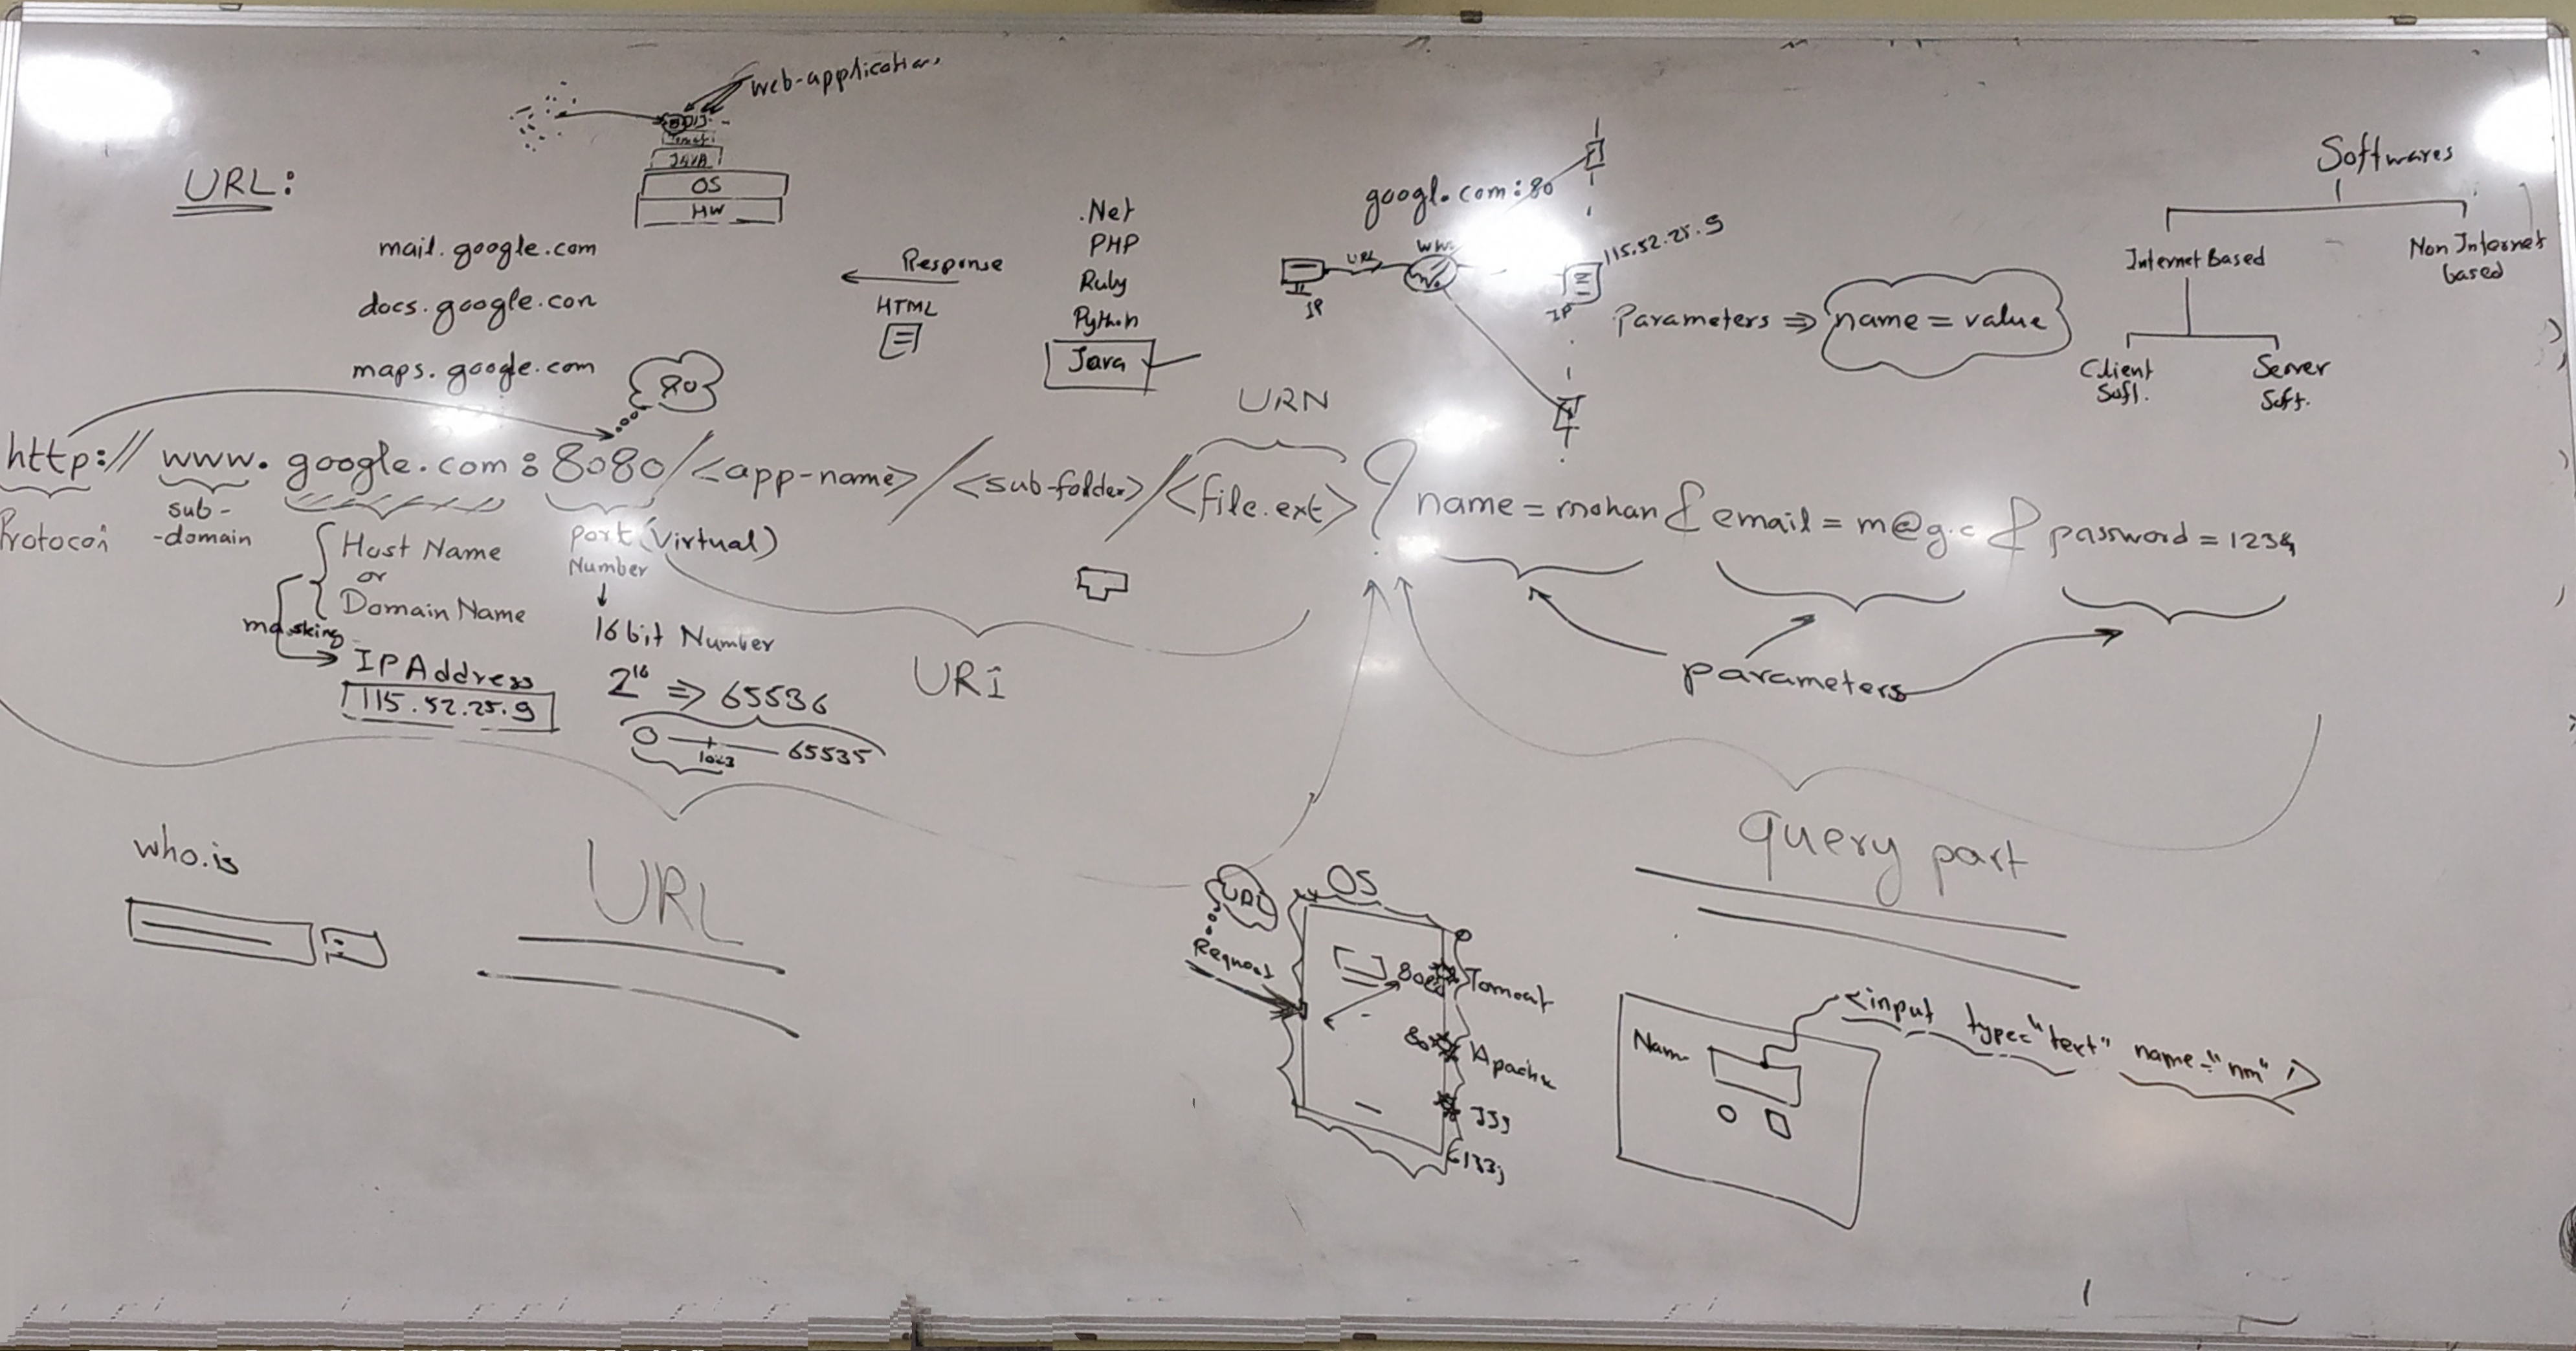 web-applications
JAVA
OS
HW
URL:
mail.google.com
docs.google.con
maps.google.com
80
Response
HTML
.Net
PHP
Ruby
Python
Java
google.com:80
URL
IP
115.52.25.9
IP
Parameters ⇒ name = value
Softwares
Internet Based
Non Internet
based
Client
Soft.
Server
Soft.
URN
http://www.google.com:8080/<app-name>/<sub-folder>/<file.ext>?name=mohan&email=m@g.c&password=1234
sub-
-domain
Host Name
or
Domain Name
masking
IP Address
115.52.25.9
port (Virtual)
Number
↓
16 bit Number
2¹⁶ ⇒ 65536
0 — 1023 — 65535
URI
parameters
who.is
URL
query part
URL
OS
Request
Tomcat
80
Apache
Nam
<input type="text" name="nm" />